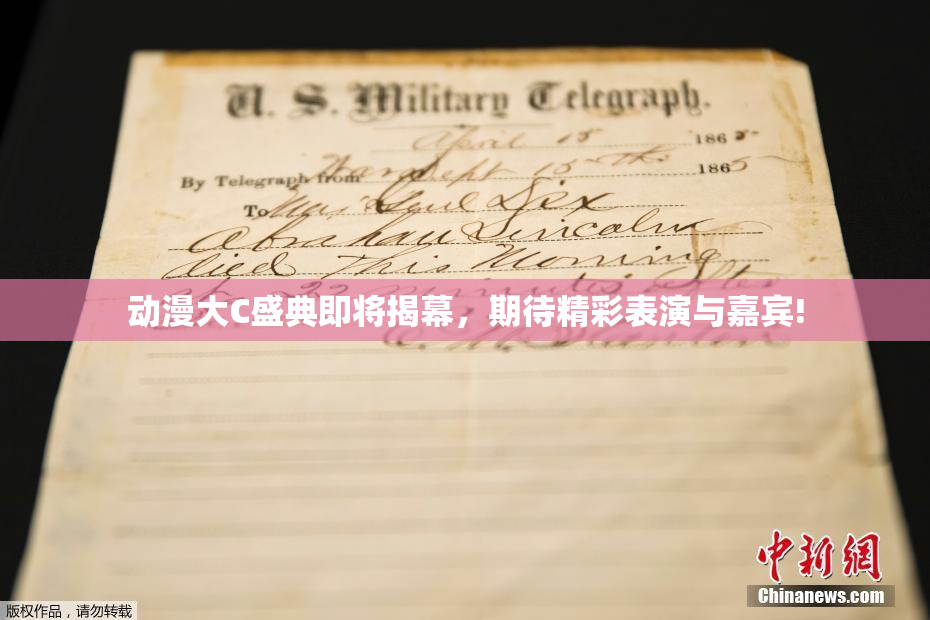 U. S. Military Telegraph.
April 15 1865
By Telegraph from War Dept 15th 1865
To Maj Genl Dix
Abraham Lincoln
died This Morning
at 22 minutes after
动漫大C盛典即将揭幕，期待精彩表演与嘉宾!
E. M. Stanton
中新网
Chinanews.com
版权作品，请勿转载